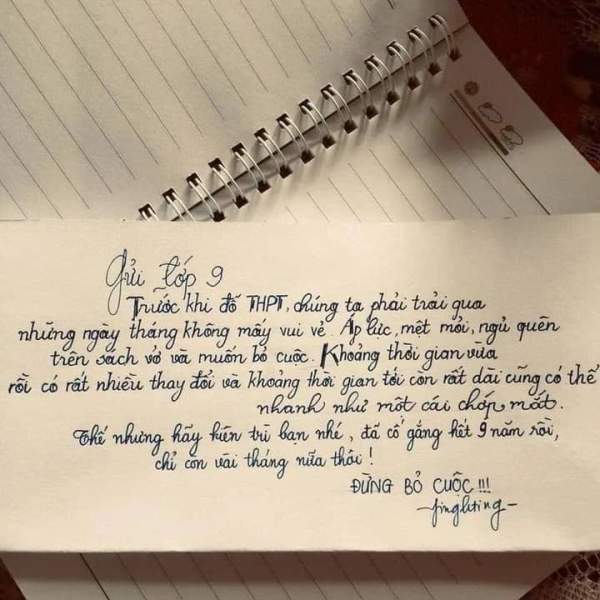 Gửi lớp 9
Trước khi đỗ THPT, chúng ta phải trải qua
những ngày tháng không mấy vui vẻ. Áp lực, mệt mỏi, ngủ quên
trên sách vở và muốn bỏ cuộc. Khoảng thời gian vừa
rồi có rất nhiều thay đổi và khoảng thời gian tới còn rất dài cũng có thể
nhanh như một cái chớp mắt.
Thế nhưng hãy kiên trì bạn nhé, đã cố gắng hết 9 năm rồi,
chỉ còn vài tháng nữa thôi!
ĐỪNG BỎ CUỘC!!!